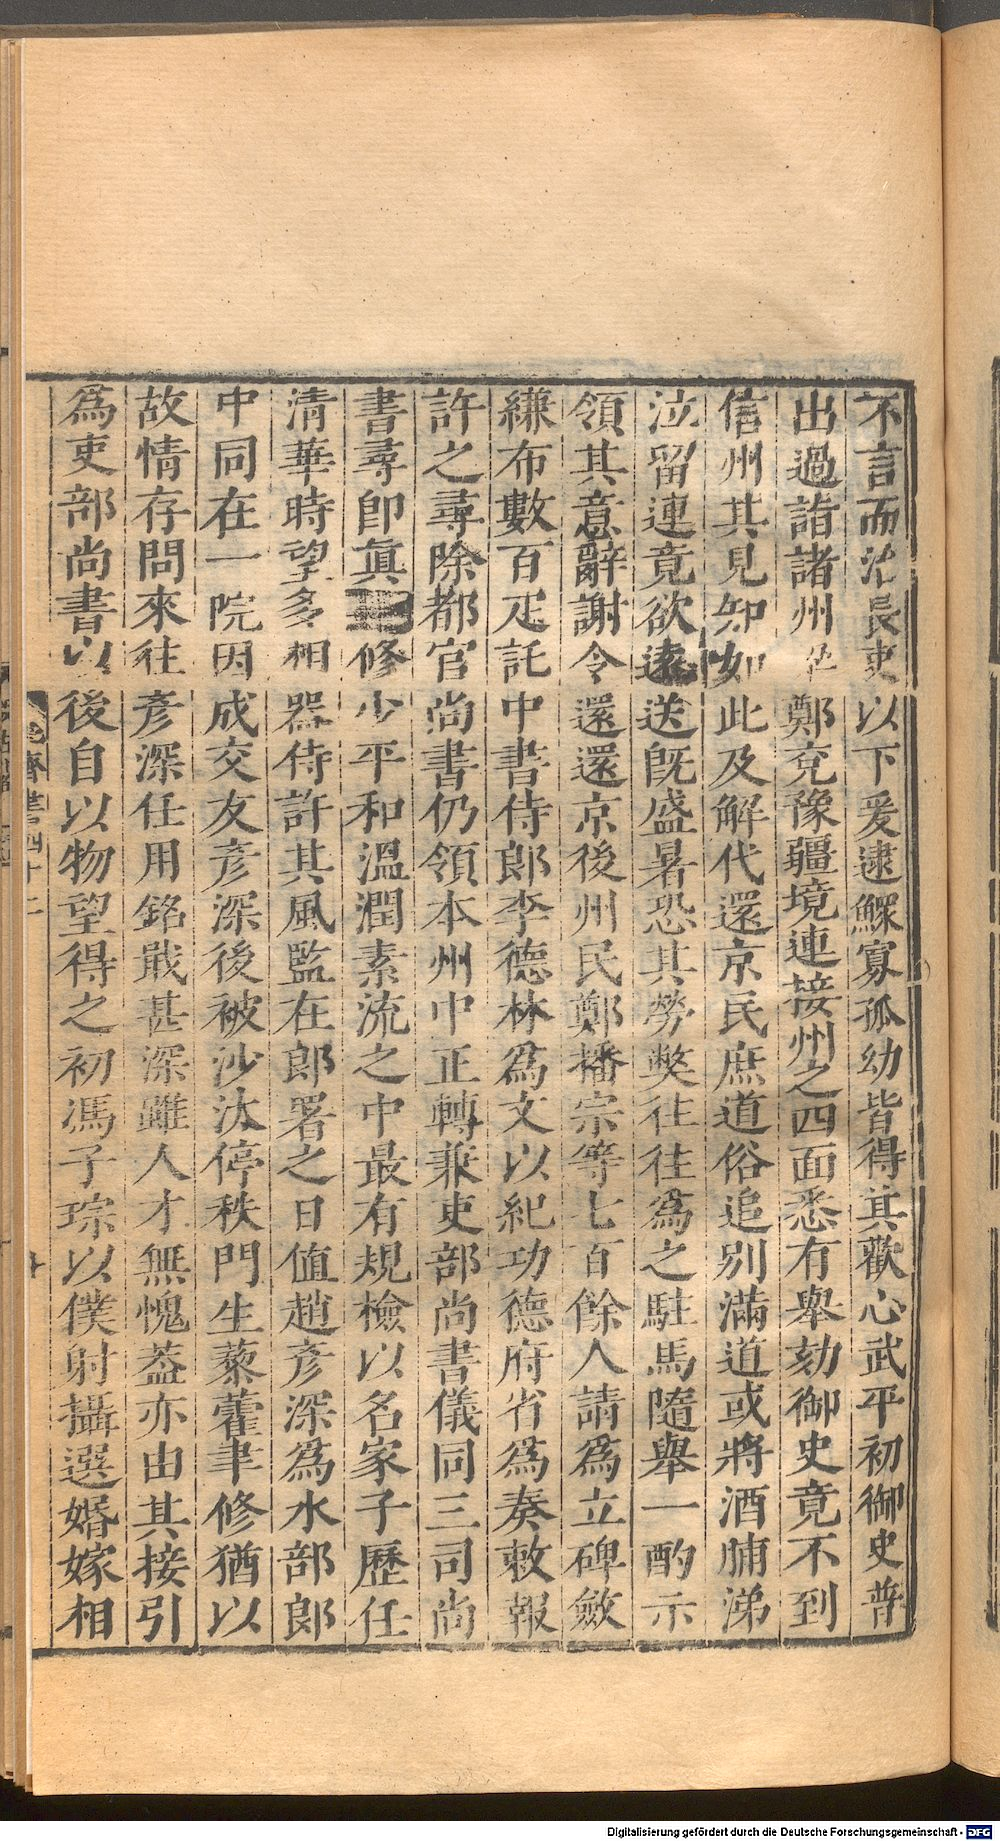 不言而治長吏以下爰逮鰥寡孤幼皆得其歡心武平初御史普
出過詣諸州 鄭兖豫疆境連接州之四面悉有舉劾御史竟不到
信州其見知如此及解代還京民庶道俗追別滿道或將酒脯涕
泣留連竟欲遠送旣盛暑恐其勞獘往往爲之駐馬隨舉一酌示
領其意辭謝令還還京後州民鄭播宗等七百餘人請爲立碑斂
縑布數百疋託中書侍郎李德林爲文以紀功德府省爲奏敕報
許之尋除都官尚書仍領本州中正轉兼吏部尚書儀同三司尚
書尋卽眞 修少平和溫潤素流之中最有規檢以名家子歷任
清華時望多相器侍許其風監在郎署之日値趙彥深爲水部郎
中同在一院因成交友彥深後被沙汰停秩門生藜藿聿修猶以
故情存問來往彥深任用銘戢甚深雖人才無愧葢亦由其接引
爲吏部尚書以後自以物望得之初馮子琮以僕射攝選婚嫁相
齊書四十二
Digitalisierung gefördert durch die Deutsche Forschungsgemeinschaft - DFG